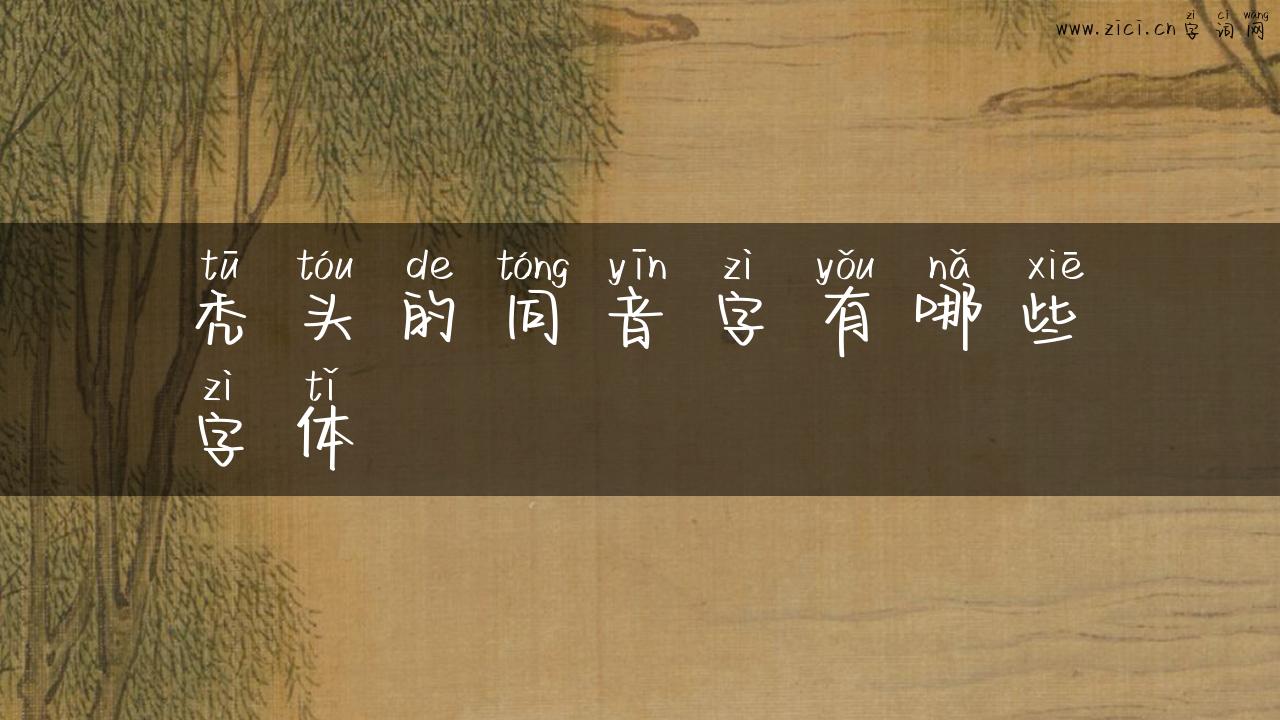 zì cí wǎng
www.zici.cn 字词网
tū tóu de tóng yīn zì yǒu nǎ xiē
秃头的同音字有哪些
zì tǐ
字体